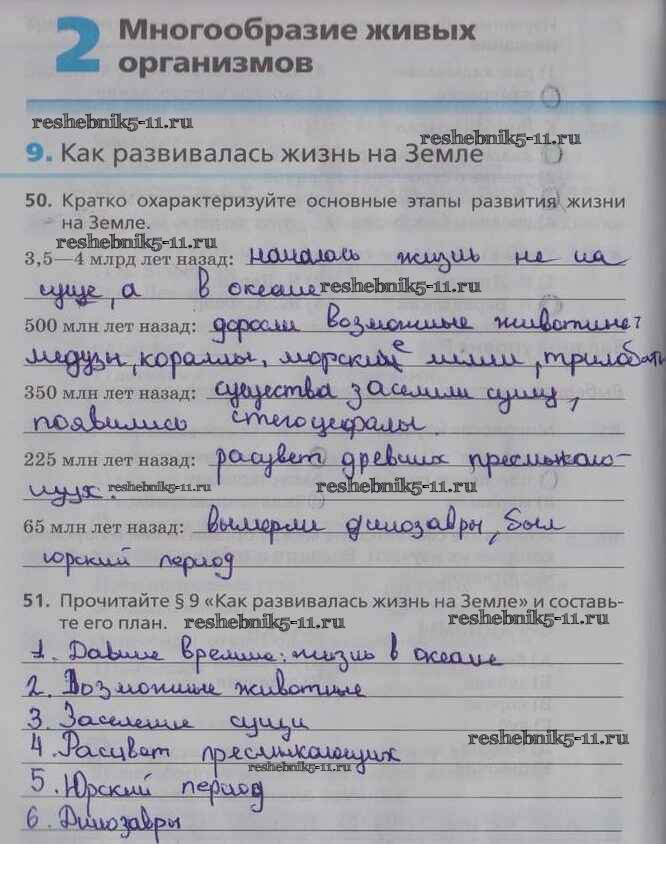 2
Многообразие живых
организмов
reshebnik5-11.ru
reshebnik5-11.ru
9. Как развивалась жизнь на Земле
50. Кратко охарактеризуйте основные этапы развития жизни
на Земле.
reshebnik5-11.ru
3,5—4 млрд лет назад: началась жизнь не на
суще, а в океане
reshebnik5-11.ru
500 млн лет назад: доросли возможные животине:
медузы, кораллы, морские лилии, трилобиты
350 млн лет назад: существа заселили сушу,
появились стегоцефалы.
225 млн лет назад: расцвет древних пресмыкаю-
щих.
reshebnik5-11.ru
reshebnik5-11.ru
65 млн лет назад: вымерли динозавры, был
юрский период
51. Прочитайте § 9 «Как развивалась жизнь на Земле» и составь-
те его план.
reshebnik5-11.ru
reshebnik5-11.ru
1. Давние времена: жизнь в океане
2. Возможные животные
3. Заселение суши
reshebnik5-11.ru
4. Расцвет пресмыкающих
reshebnik5-11.ru
5. Юрский период
6. Динозавры